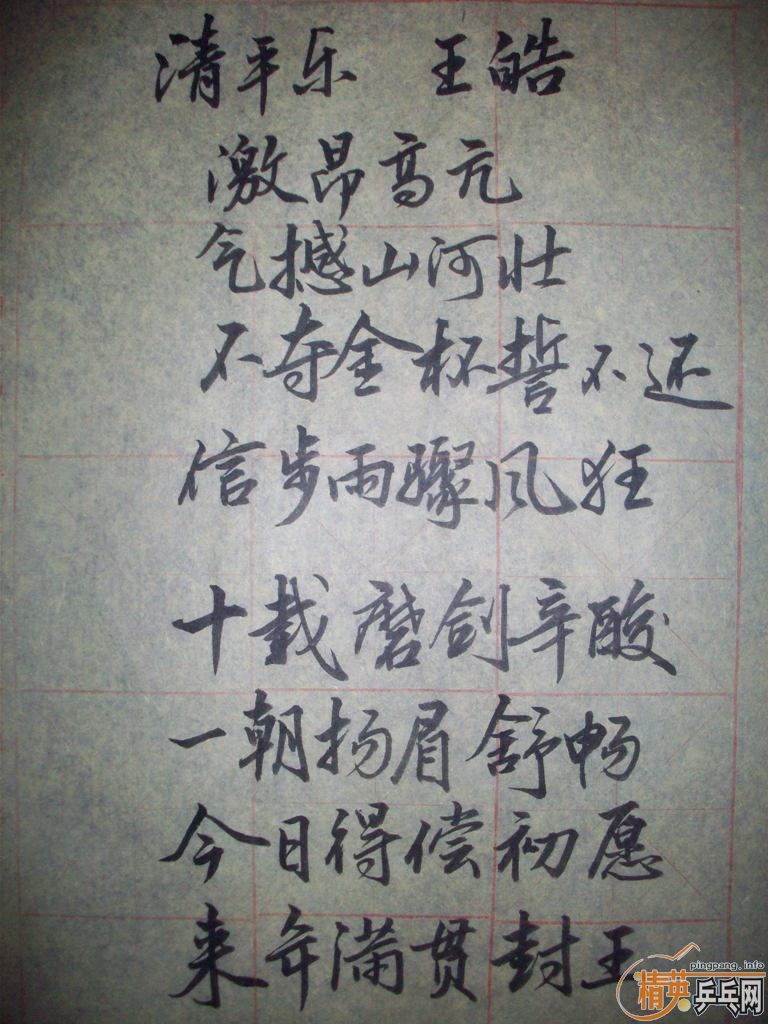 清平乐 王皓
激昂高亢
气撼山河壮
不夺金杯誓不还
信步雨骤风狂
十载磨剑辛酸
一朝扬眉舒畅
今日得偿初愿
来年满贯封王
pingpang.info
精英乒乓网